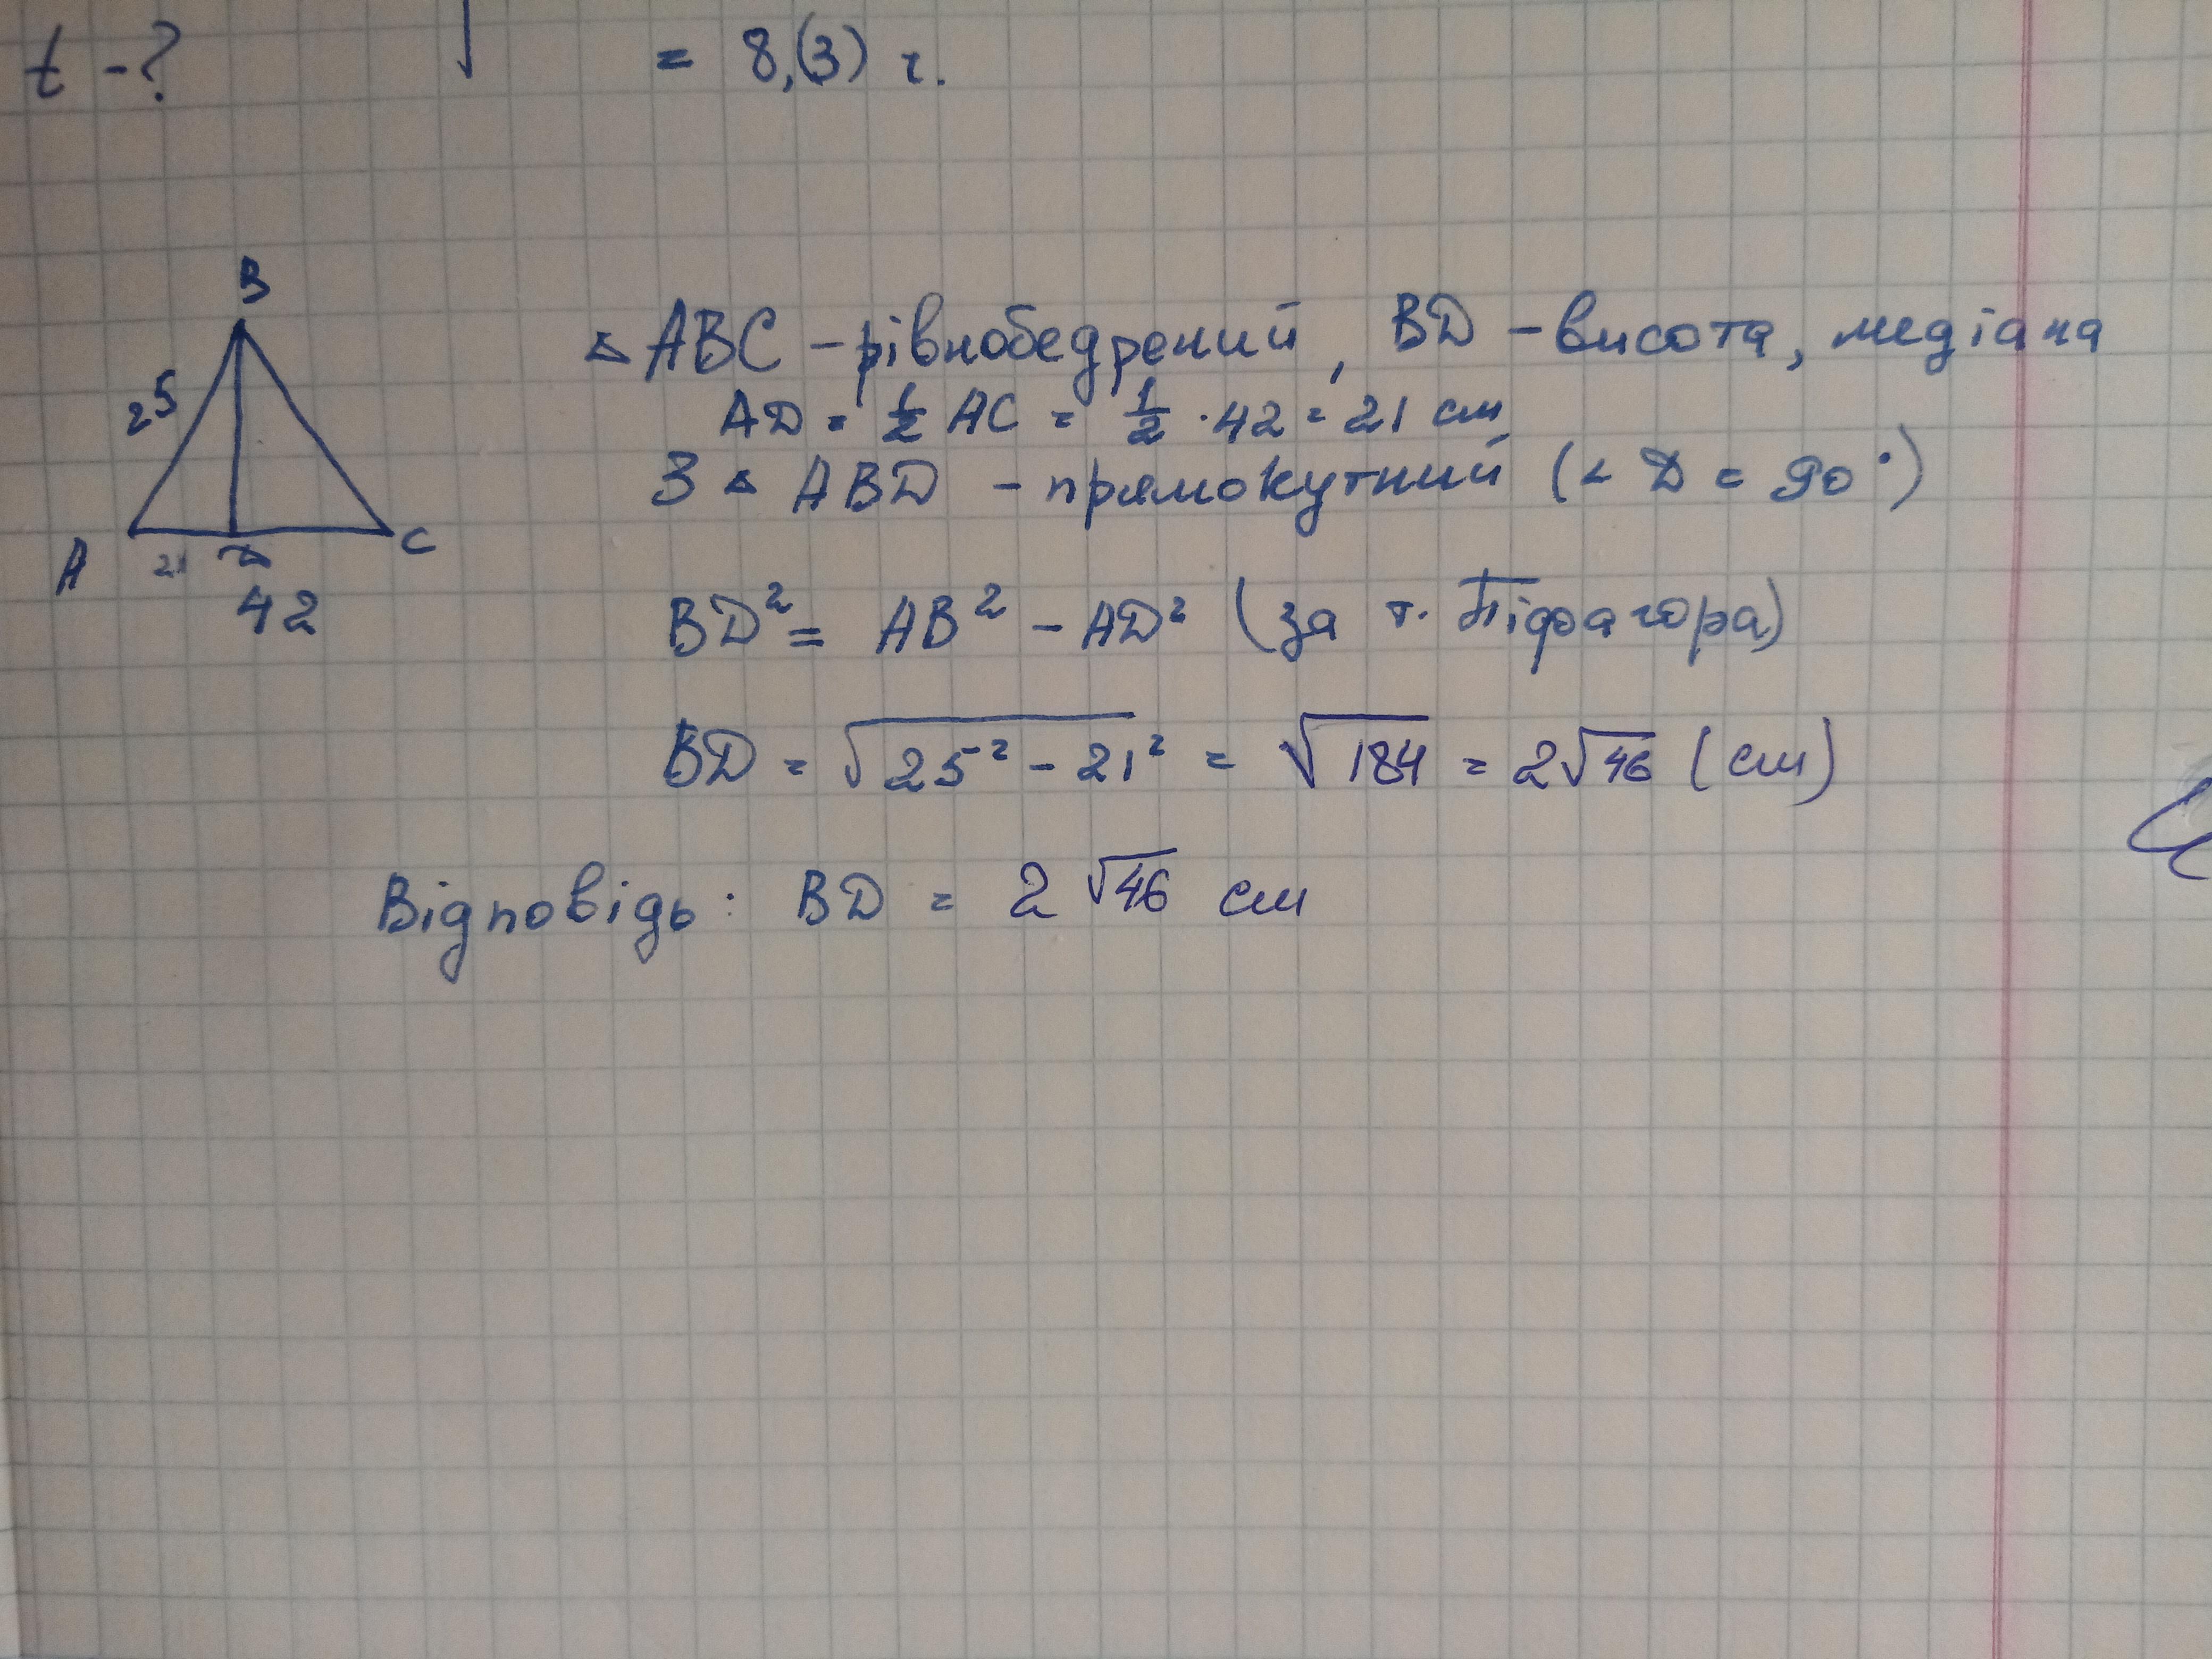 t - ?
= 8,(3) г.
B
25
A
21
D
C
42
△ ABC – рівнобедрений, BD – висота, медіана
AD = 1/2 AC = 1/2 · 42 = 21 см
З △ ABD – прямокутний (∠ D = 90°)
BD² = AB² – AD² (за т. Піфагора)
BD = √25² – 21² = √184 = 2√46 (см)
Відповідь: BD = 2 √46 см